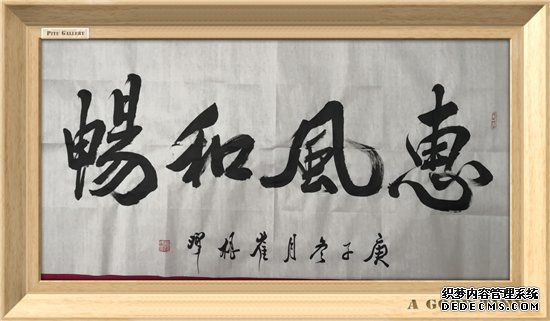 PITU GALLERY
惠風和暢
庚子冬月崔
A GO
织梦内容管理系统
DEDECMS.COM